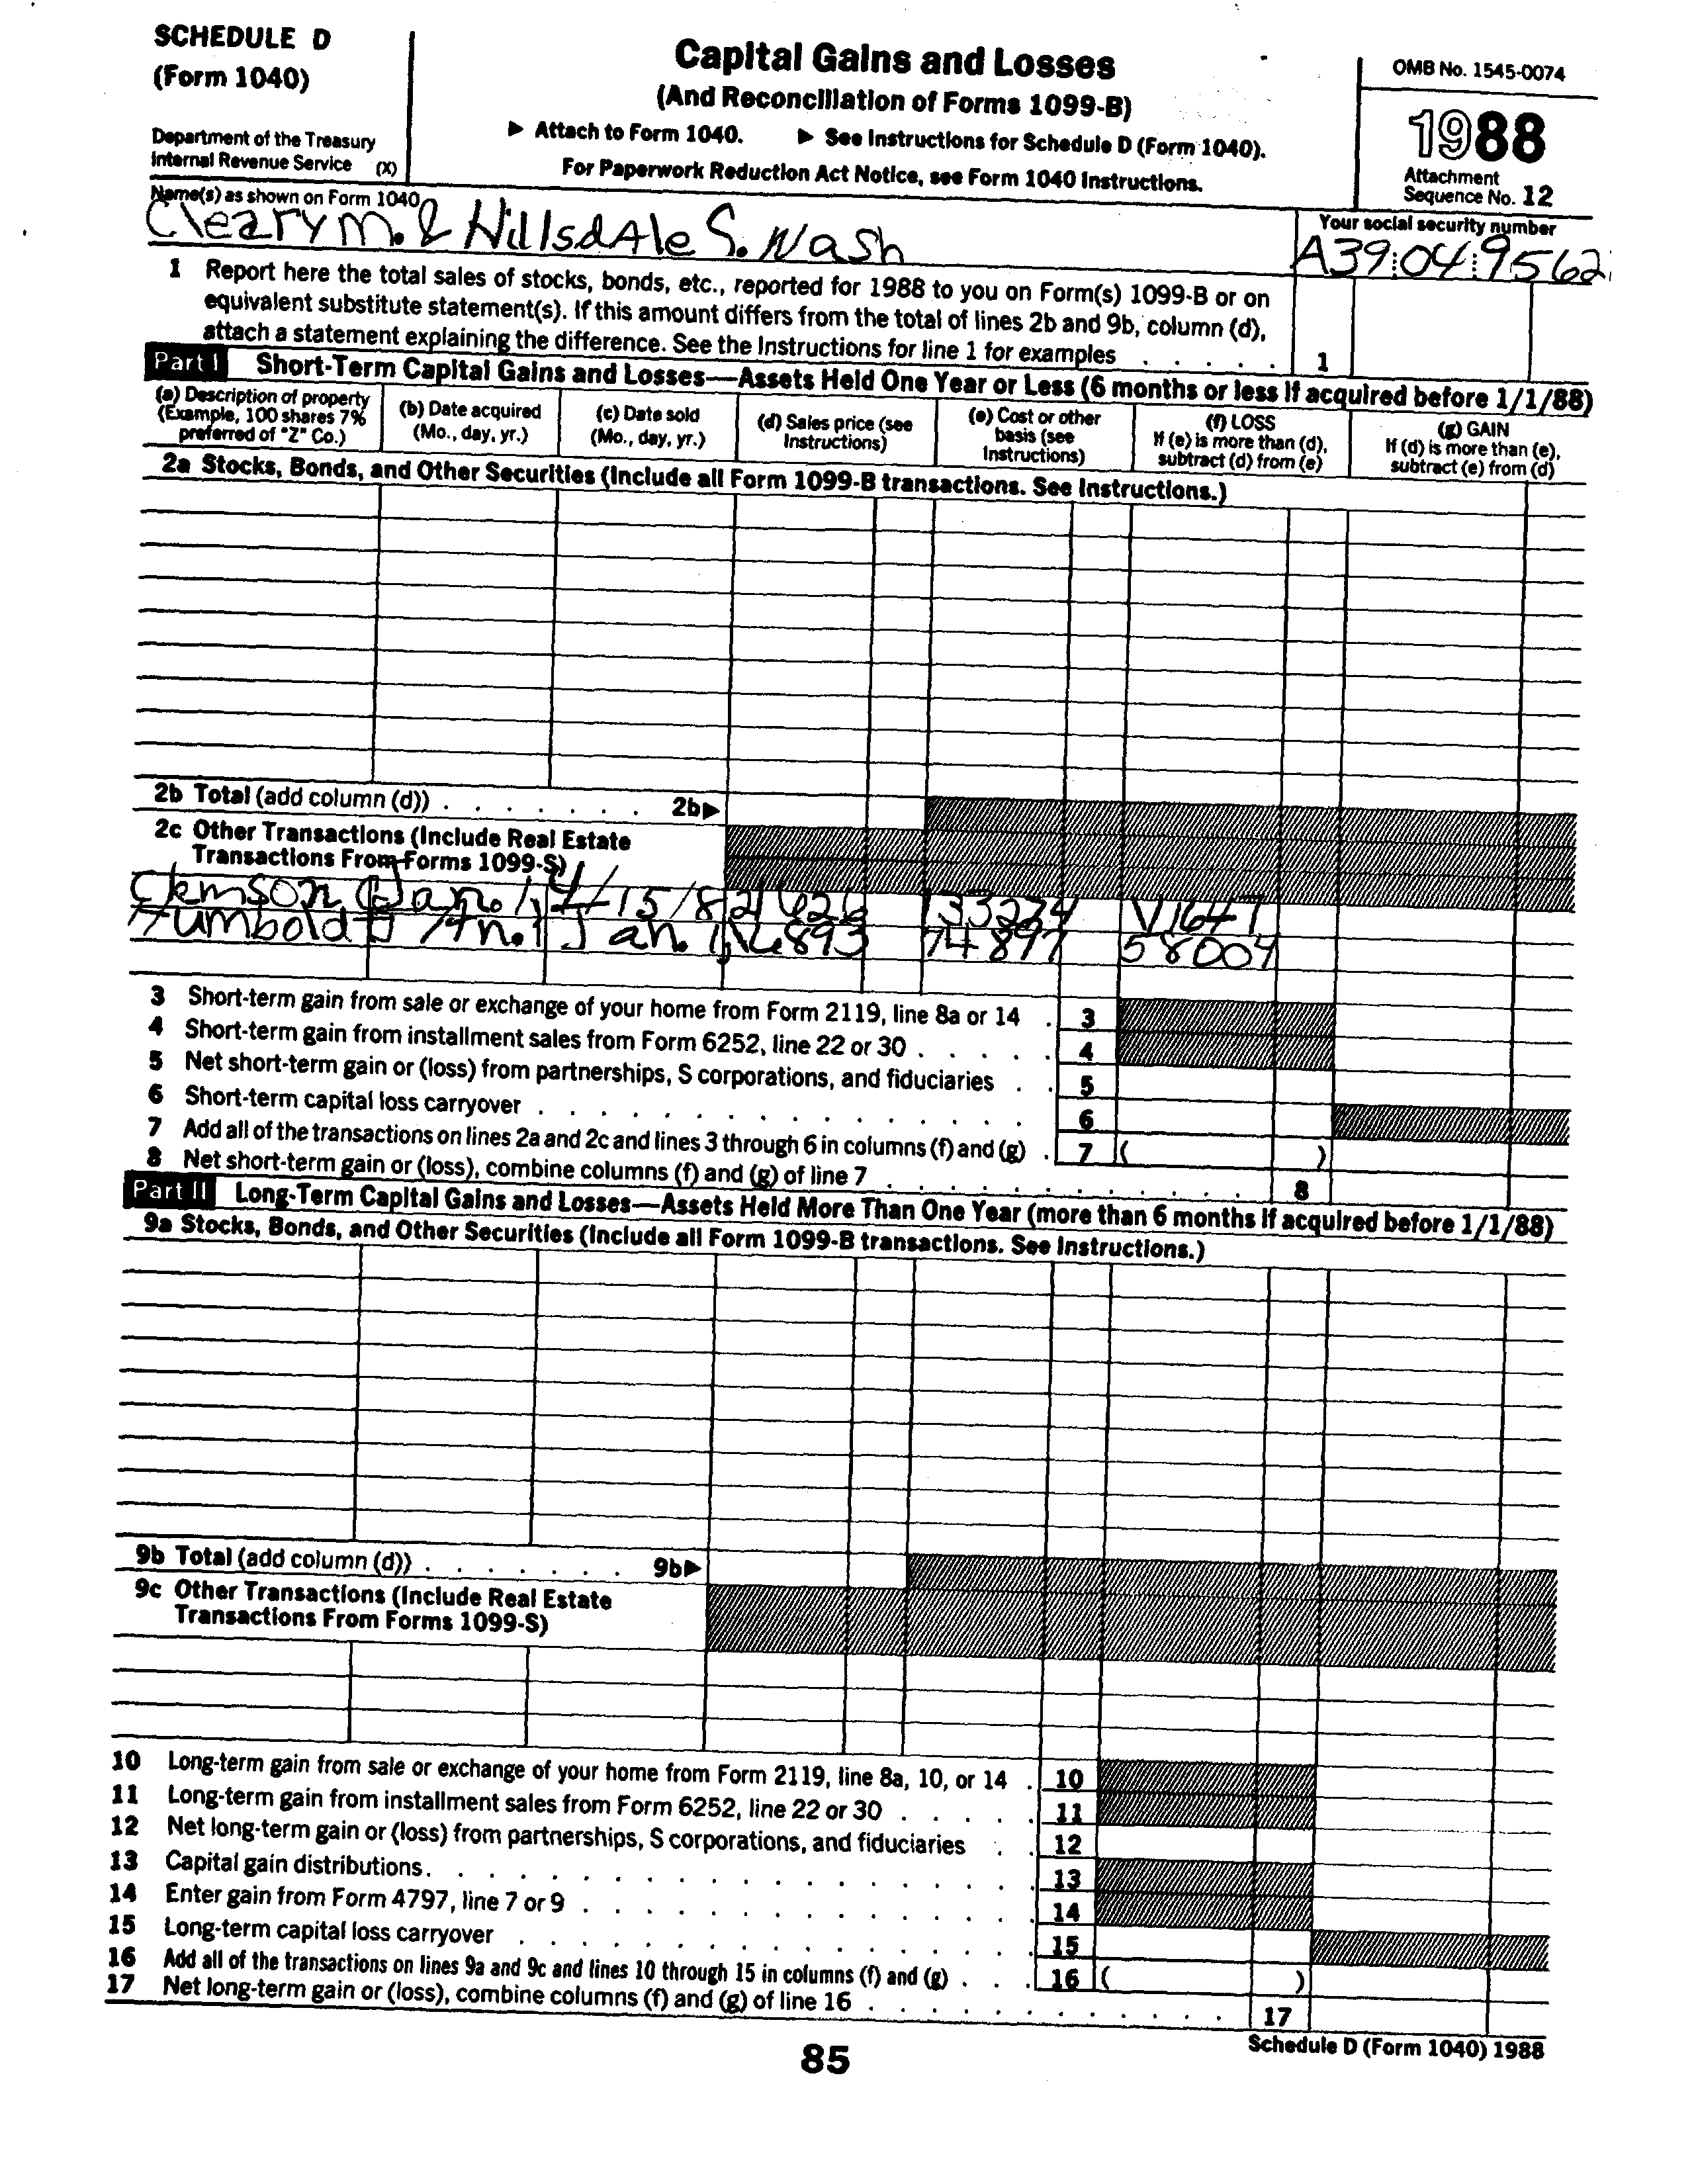 SCHEDULE D
(Form 1040)
Department of the Treasury
Internal Revenue Service (X)
Capital Gains and Losses
(And Reconciliation of Forms 1099-B)
▶ Attach to Form 1040. ▶ See Instructions for Schedule D (Form 1040).
For Paperwork Reduction Act Notice, see Form 1040 Instructions.
OMB No. 1545-0074
1988
Attachment
Sequence No. 12
Name(s) as shown on Form 1040
Cleary M. & HillsdAle S. Nash
Your social security number
A39:04:9562
1 Report here the total sales of stocks, bonds, etc., reported for 1988 to you on Form(s) 1099-B or on
equivalent substitute statement(s). If this amount differs from the total of lines 2b and 9b, column (d),
attach a statement explaining the difference. See the Instructions for line 1 for examples . . . . . 1
Part I Short-Term Capital Gains and Losses—Assets Held One Year or Less (6 months or less if acquired before 1/1/88)
(a) Description of property
(Example, 100 shares 7%
preferred of "Z" Co.)
(b) Date acquired
(Mo., day, yr.)
(c) Date sold
(Mo., day, yr.)
(d) Sales price (see
Instructions)
(e) Cost or other
basis (see
Instructions)
(f) LOSS
If (e) is more than (d),
subtract (d) from (e)
(g) GAIN
If (d) is more than (e),
subtract (e) from (d)
2a Stocks, Bonds, and Other Securities (Include all Form 1099-B transactions. See Instructions.)
2b Total (add column (d)) . . . . . . . 2b▶
2c Other Transactions (Include Real Estate
Transactions From Forms 1099-S)
Clemson Jan. 1, 4/15/8 21626 133274
Humboldt Jan. 1, 16893 74897 58004
3 Short-term gain from sale or exchange of your home from Form 2119, line 8a or 14 . 3
4 Short-term gain from installment sales from Form 6252, line 22 or 30 . . . . . 4
5 Net short-term gain or (loss) from partnerships, S corporations, and fiduciaries . . 5
6 Short-term capital loss carryover . . . . . . . . . . . . . . . . 6
7 Add all of the transactions on lines 2a and 2c and lines 3 through 6 in columns (f) and (g) . 7 ( )
8 Net short-term gain or (loss), combine columns (f) and (g) of line 7 . . . . . . . . . . . . 8
Part II Long-Term Capital Gains and Losses—Assets Held More Than One Year (more than 6 months if acquired before 1/1/88)
9a Stocks, Bonds, and Other Securities (Include all Form 1099-B transactions. See Instructions.)
9b Total (add column (d)) . . . . . . . 9b▶
9c Other Transactions (Include Real Estate
Transactions From Forms 1099-S)
10 Long-term gain from sale or exchange of your home from Form 2119, line 8a, 10, or 14 . 10
11 Long-term gain from installment sales from Form 6252, line 22 or 30 . . . . . 11
12 Net long-term gain or (loss) from partnerships, S corporations, and fiduciaries . . 12
13 Capital gain distributions. . . . . . . . . . . . . . . . . . . . 13
14 Enter gain from Form 4797, line 7 or 9 . . . . . . . . . . . . . . 14
15 Long-term capital loss carryover . . . . . . . . . . . . . . . . . 15
16 Add all of the transactions on lines 9a and 9c and lines 10 through 15 in columns (f) and (g) . . . 16 ( )
17 Net long-term gain or (loss), combine columns (f) and (g) of line 16 . . . . . . . . . . . . 17
85
Schedule D (Form 1040) 1988